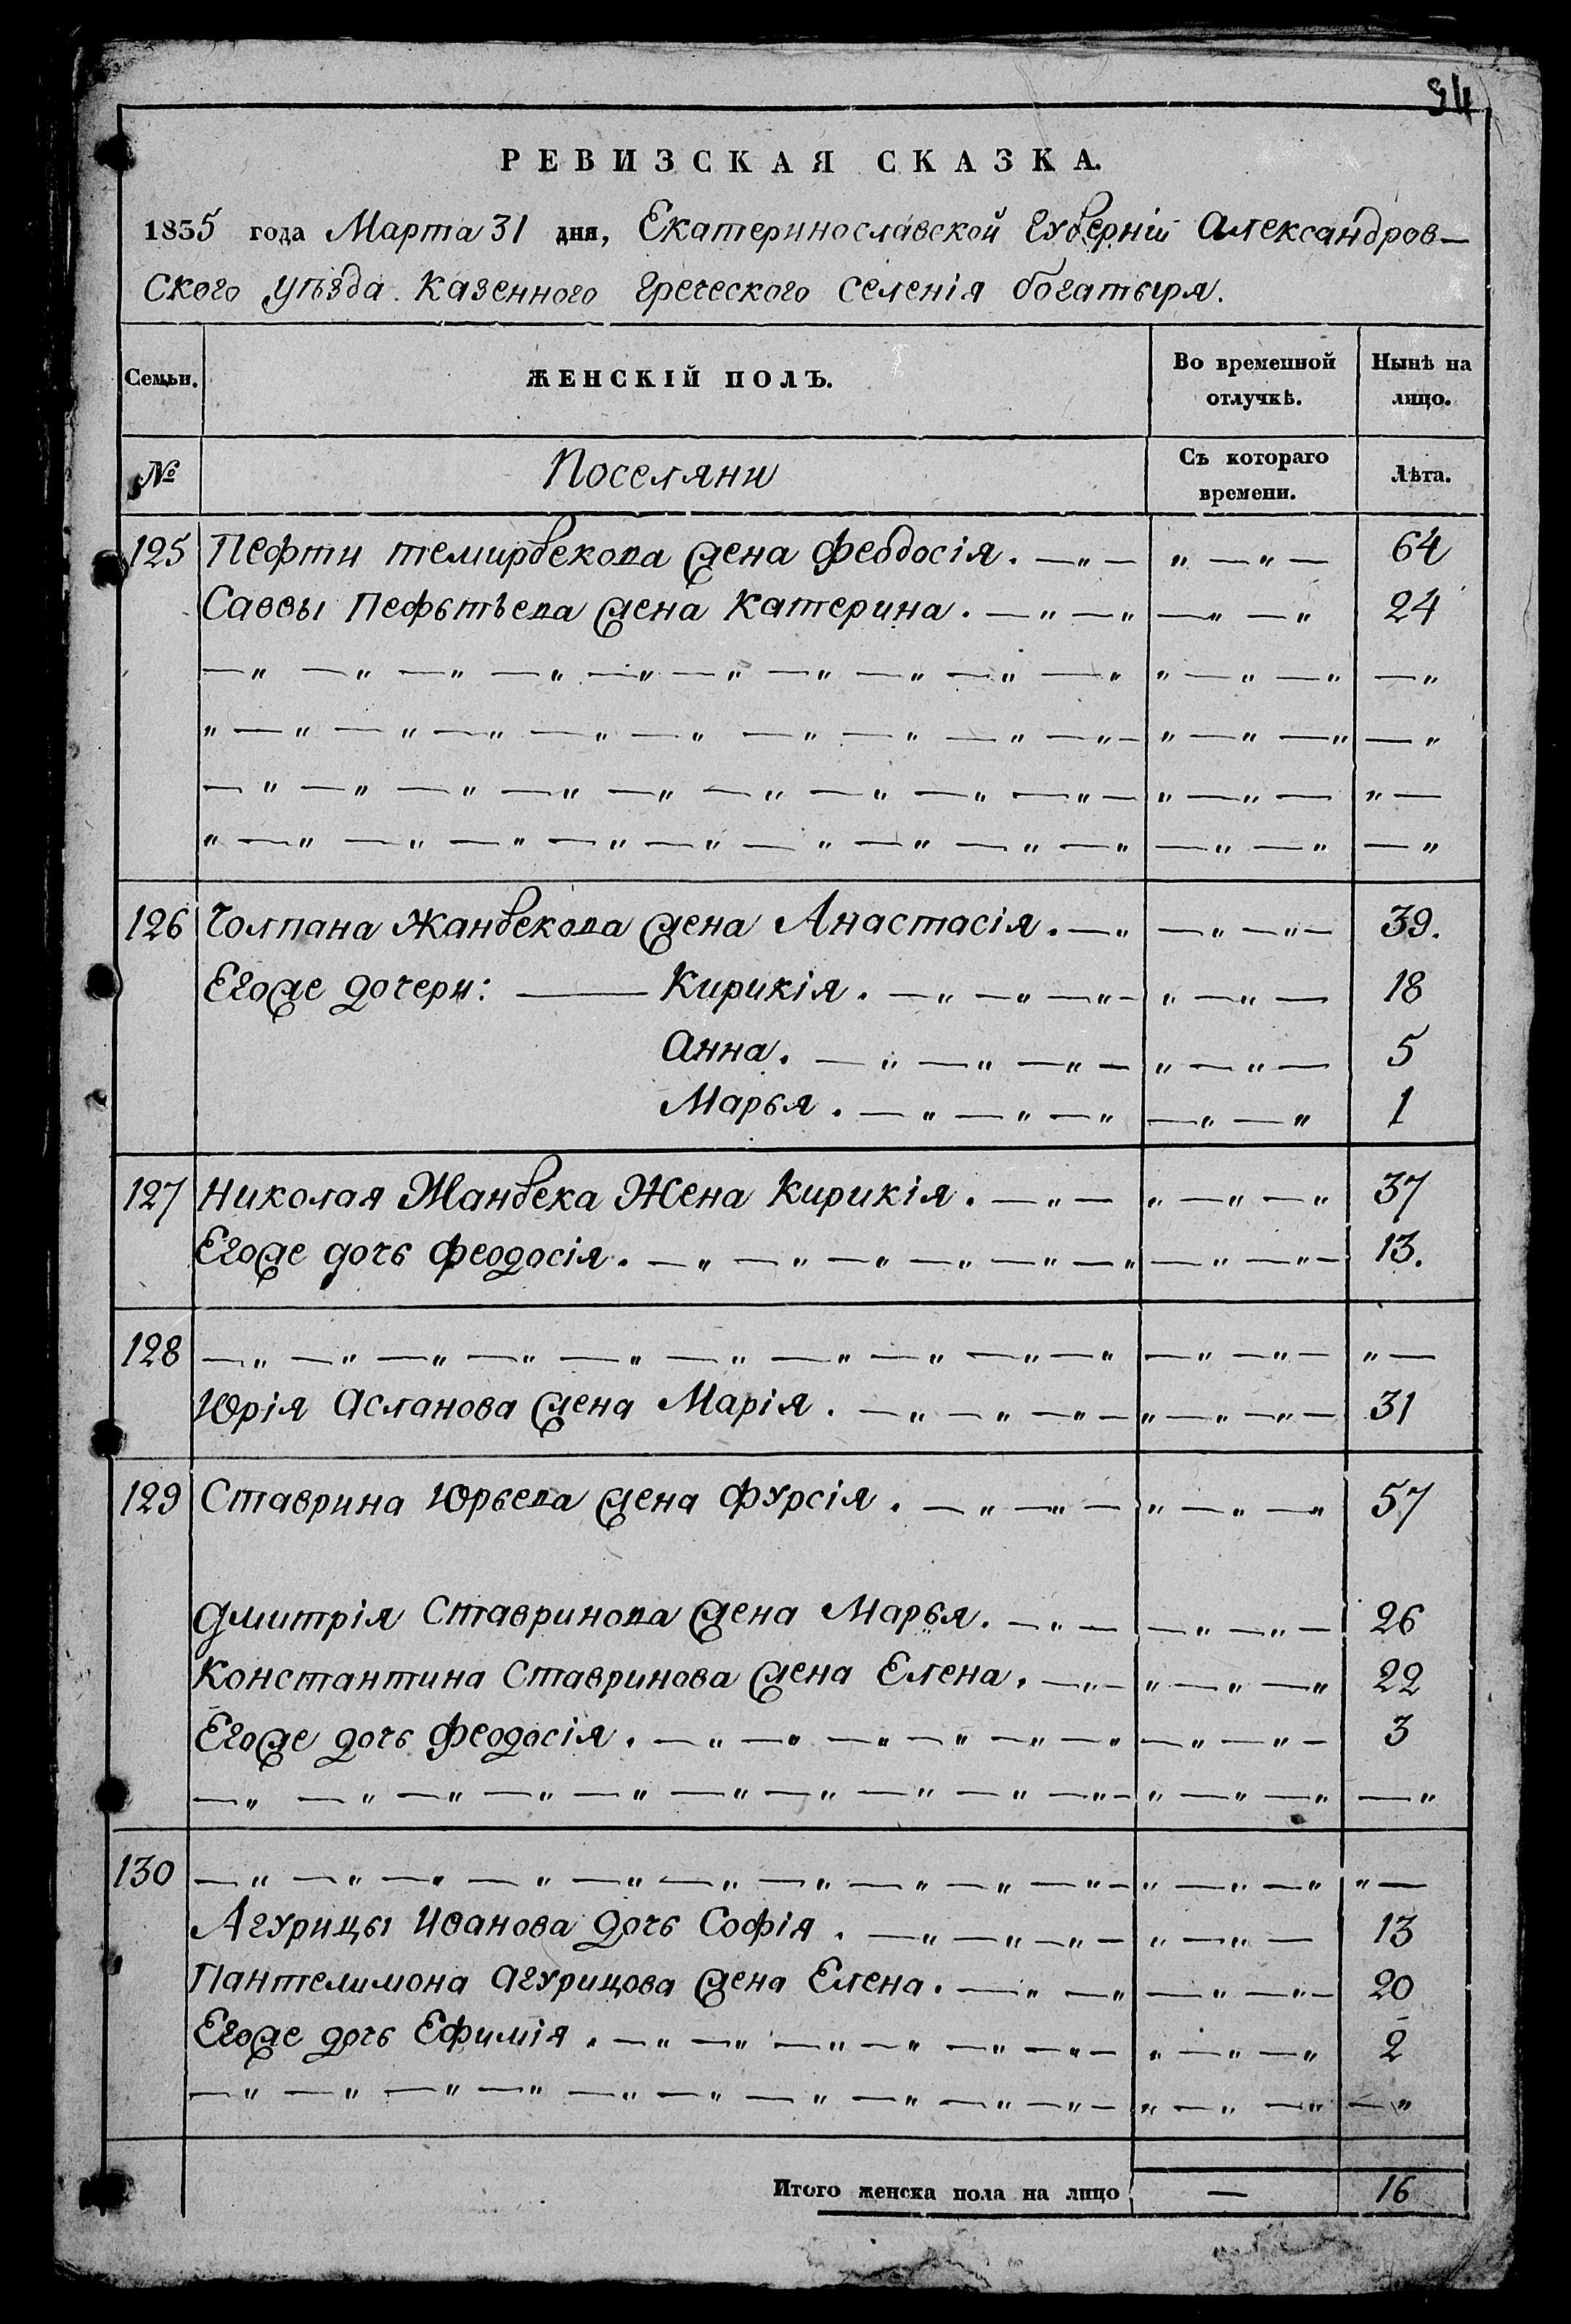 94
РЕВИЗСКАЯ СКАЗКА.
1835 года Марта 31 дня, Екатеринославской Губерніи Александров-
ского уѣзда казенного греческого селенія богатыря.
Семьи. ЖЕНСКІЙ ПОЛЪ. Во временной отлучкѣ. Нынѣ на лицо.
№ Поселяни Съ котораго времени. Лѣта.
125 Пефти темирбекова жена Феодосія. 64
Саввы Пефьтьева жена Катерина. 24
126 Чолпана Жанбекова жена Анастасія. 39.
Егоже дочери: Кирикія. 18
Анна. 5
Марья. 1
127 Николая Жанбека Жена Кирикія. 37
Егоже дочь Феодосія. 13.
128
Юрія Асланова жена Марія. 31
129 Ставрина Юрьева жена Фурсія. 57
Дмитрія Ставринова жена Марья. 26
Константина Ставринова жена Елена. 22
Егоже дочь Феодосія. 3
130
Агурицы Иванова дочь Софія. 13
Пантелимона Агурицова жена Елена. 20
Егоже дочь Ефимія. 2
Итого женска пола на лицо — 16